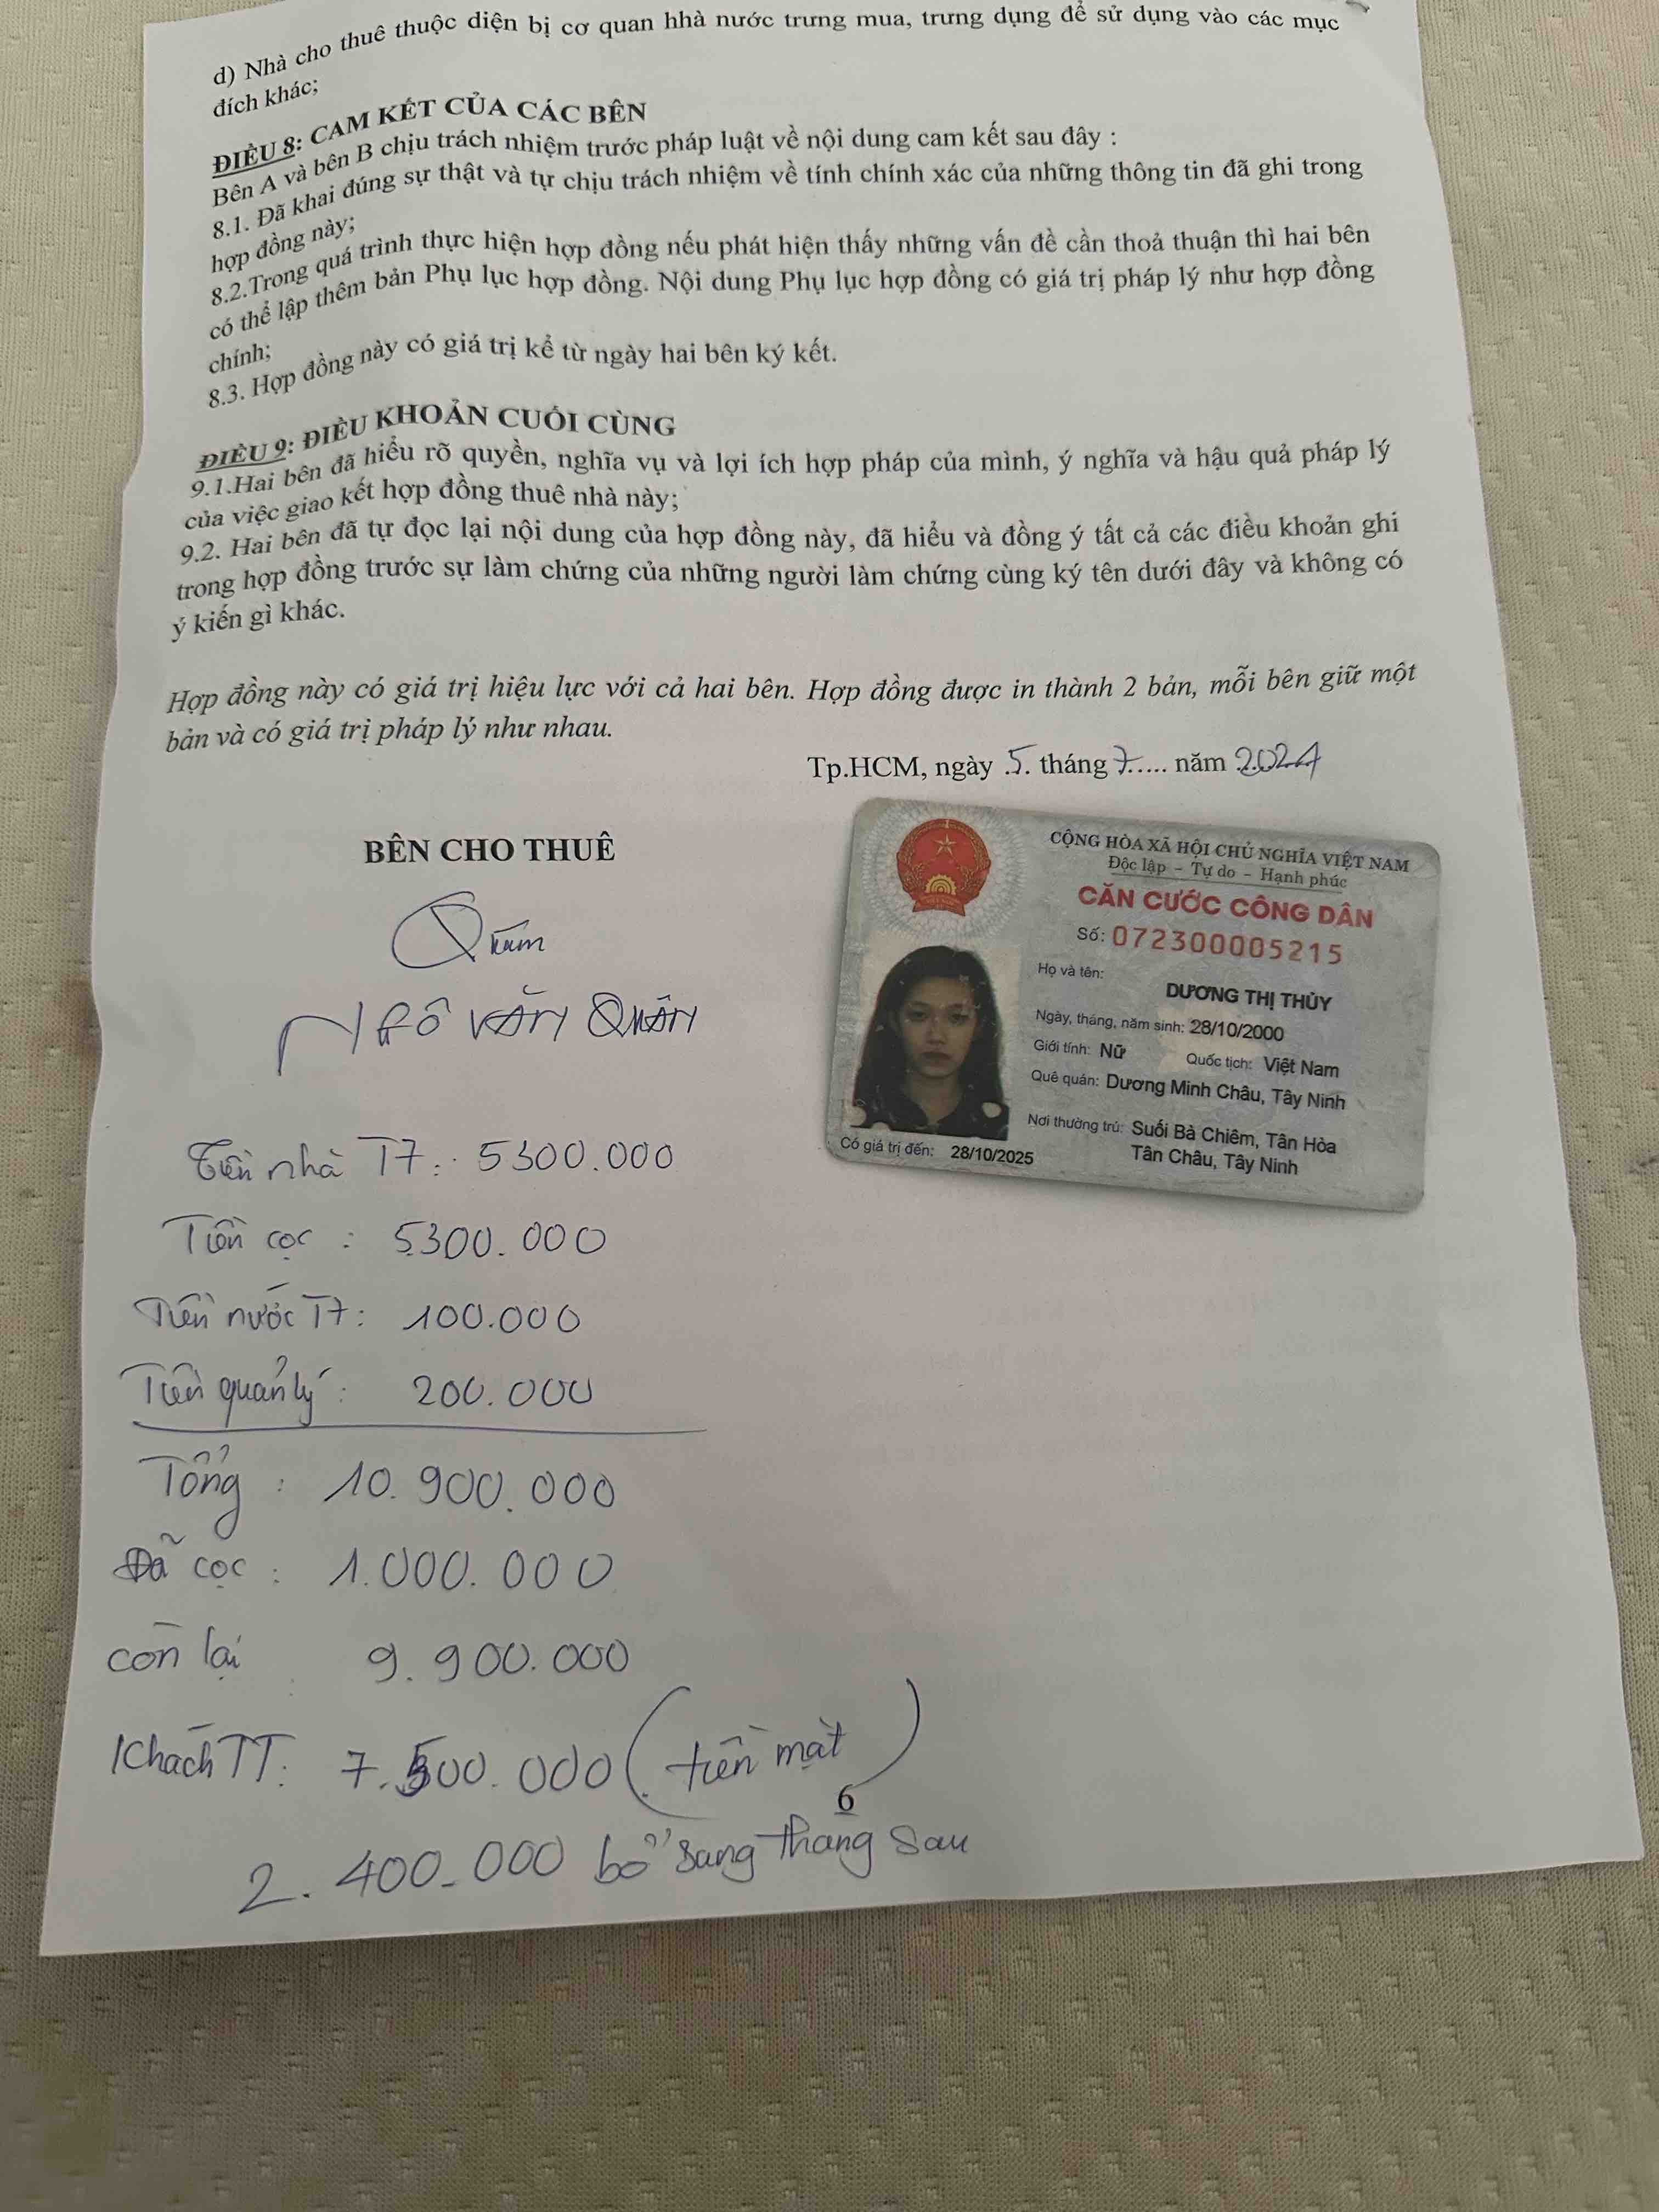 d) Nhà cho thuê thuộc diện bị cơ quan hhà nước trưng mua, trưng dụng để sử dụng vào các mục
đích khác;
ĐIỀU 8: CAM KẾT CỦA CÁC BÊN
Bên A và bên B chịu trách nhiệm trước pháp luật về nội dung cam kết sau đây :
8.1. Đã khai đúng sự thật và tự chịu trách nhiệm về tính chính xác của những thông tin đã ghi trong
hợp đồng này;
8.2.Trong quá trình thực hiện hợp đồng nếu phát hiện thấy những vấn đề cần thoả thuận thì hai bên
có thể lập thêm bản Phụ lục hợp đồng. Nội dung Phụ lục hợp đồng có giá trị pháp lý như hợp đồng
chính;
8.3. Hợp đồng này có giá trị kể từ ngày hai bên ký kết.
ĐIỀU 9: ĐIỀU KHOẢN CUỐI CÙNG
9.1.Hai bên đã hiểu rõ quyền, nghĩa vụ và lợi ích hợp pháp của mình, ý nghĩa và hậu quả pháp lý
của việc giao kết hợp đồng thuê nhà này;
9.2. Hai bên đã tự đọc lại nội dung của hợp đồng này, đã hiểu và đồng ý tất cả các điều khoản ghi
trong hợp đồng trước sự làm chứng của những người làm chứng cùng ký tên dưới đây và không có
ý kiến gì khác.
Hợp đồng này có giá trị hiệu lực với cả hai bên. Hợp đồng được in thành 2 bản, mỗi bên giữ một
bản và có giá trị pháp lý như nhau.
Tp.HCM, ngày .5. tháng 7..... năm 2024
BÊN CHO THUÊ
NGÔ VĂN QUÂN
CỘNG HÒA XÃ HỘI CHỦ NGHĨA VIỆT NAM
Độc lập - Tự do - Hạnh phúc
CĂN CƯỚC CÔNG DÂN
Số: 072300005215
Họ và tên:
DƯƠNG THỊ THỦY
Ngày, tháng, năm sinh: 28/10/2000
Giới tính: Nữ Quốc tịch: Việt Nam
Quê quán: Dương Minh Châu, Tây Ninh
Nơi thường trú: Suối Bà Chiêm, Tân Hòa
Tân Châu, Tây Ninh
Có giá trị đến: 28/10/2025
Tiền nhà T7: 5300.000
Tiền cọc : 5300.000
Tiền nước T7: 100.000
Tiền quản lý : 200.000
Tổng : 10.900.000
Đã cọc : 1.000.000
còn lại 9.900.000
Khách TT: 7.500.000 (tiền mặt)
6
2.400.000 bổ sang tháng sau